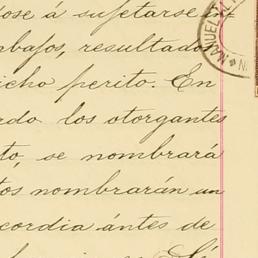 dose á sujetarse
bajos, resultados
dicho perito. En
los otorgantes
to, se nombrará
tos nombrarán un
cordia ántes de
MANUEL AL